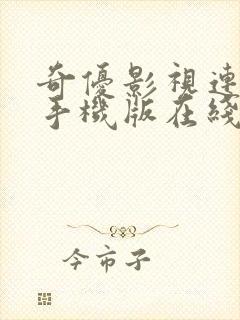 奇優影視連
手機版在綫
今市子